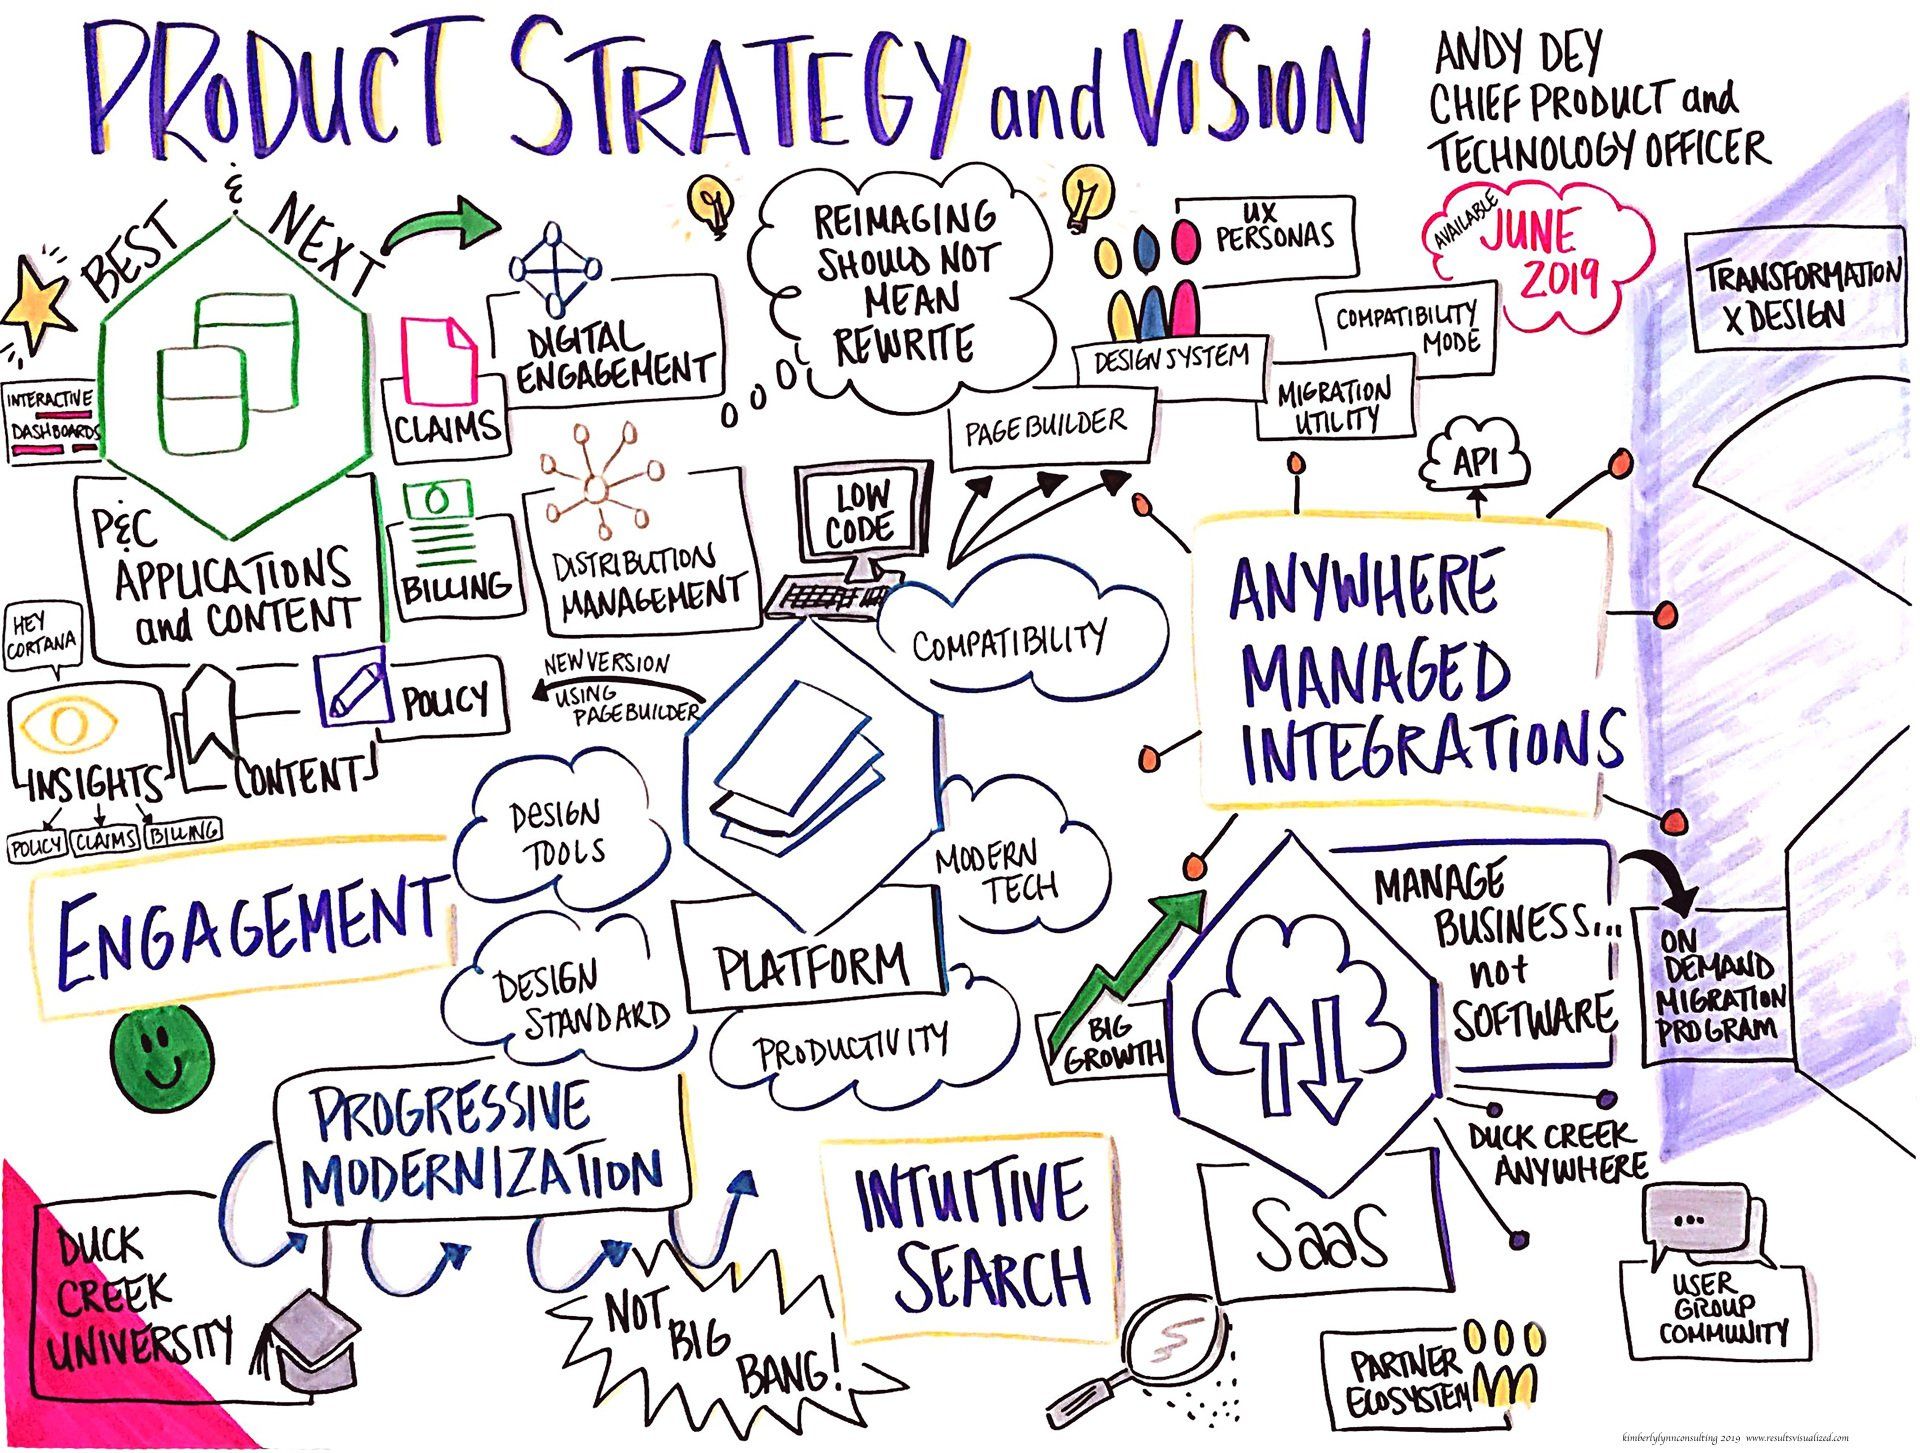 PRODUCT STRATEGY and VISION
ANDY DEY
CHIEF PRODUCT and
TECHNOLOGY OFFICER
BEST
&
NEXT
INTERACTIVE
DASHBOARDS
P&C
APPLICATIONS
and CONTENT
CLAIMS
DIGITAL
ENGAGEMENT
BILLING
DISTRIBUTION
MANAGEMENT
HEY
CORTANA
INSIGHTS
POLICY
CLAIMS
BILLING
CONTENT
POLICY
NEW VERSION
USING
PAGE BUILDER
REIMAGING
SHOULD NOT
MEAN
REWRITE
UX
PERSONAS
AVAILABLE
JUNE
2019
COMPATIBILITY
MODE
DESIGN SYSTEM
MIGRATION
UTILITY
PAGE BUILDER
LOW
CODE
COMPATIBILITY
API
TRANSFORMATION
X DESIGN
ANYWHERE
MANAGED
INTEGRATIONS
ENGAGEMENT
DESIGN
TOOLS
DESIGN
STANDARD
MODERN
TECH
PLATFORM
PRODUCTIVITY
BIG
GROWTH
MANAGE
BUSINESS...
not
SOFTWARE
ON
DEMAND
MIGRATION
PROGRAM
DUCK CREEK
ANYWHERE
SaaS
PROGRESSIVE
MODERNIZATION
NOT
BIG
BANG!
INTUITIVE
SEARCH
DUCK
CREEK
UNIVERSITY
PARTNER
ECOSYSTEM
...
USER
GROUP
COMMUNITY
kimberlylynnconsulting 2019 www.resultsvisualized.com